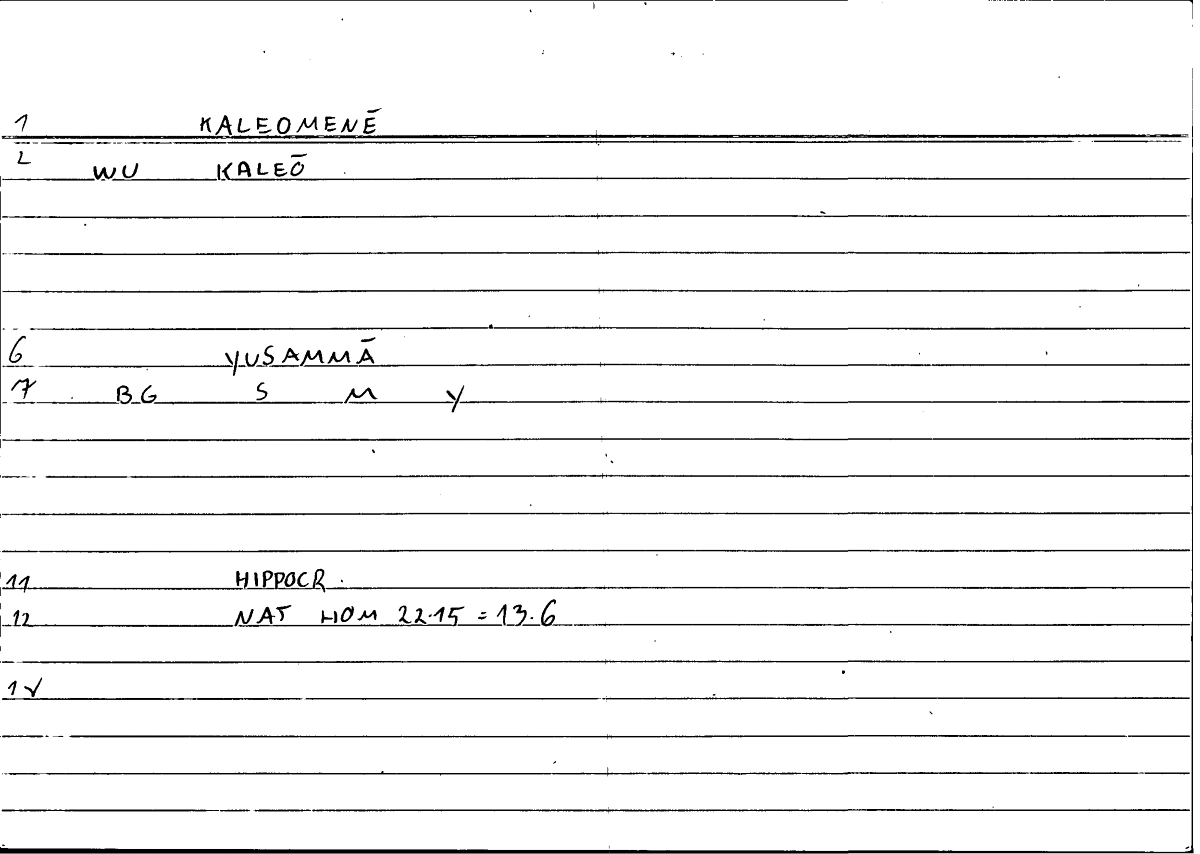 1 KALEOMENĒ
2 WU KALEŌ
6 YUSAMMĀ
7 BG S M Y
11 HIPPOCR.
12 NAT HOM 22.15 = 13.6
1V